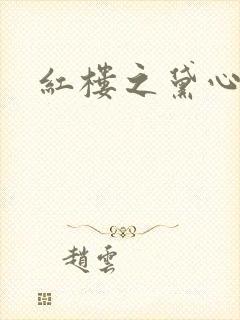 紅樓之黛心
趙雲